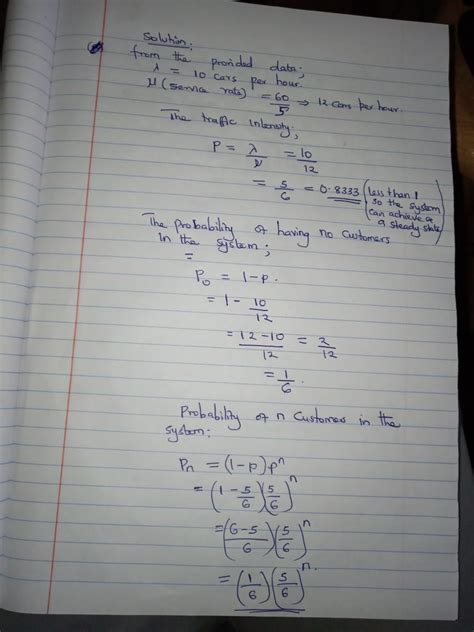 Solution;
from the provided data;
λ = 10 cars per hour.
μ (service rate) = 60/5 ⇒ 12 cars per hour.
The traffic intensity;
P = λ/μ = 10/12
= 5/6 = 0.8333 (less than 1 so the system can achieve a a steady state)
The probability of having no customers
in the system;
=
P₀ = 1-p.
= 1 - 10/12
= 12-10/12 = 2/12
= 1/6.
Probability of n customers in the
system:
Pn = (1-p)pⁿ
= (1-5/6)(5/6)ⁿ
= (6-5/6)(5/6)ⁿ
= (1/6)(5/6)ⁿ.